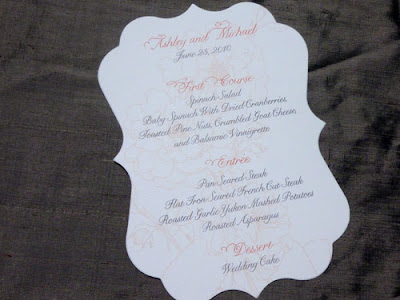 Ashley and Michael
June 25, 2010
First Course
Spinach Salad
Baby Spinach With Dried Cranberries,
Toasted Pine Nuts, Crumbled Goat Cheese,
and Balsamic Vinaigrette
Entrée
Pan-Seared Steak
Flat Iron Seared French Cut Steak
Roasted Garlic Yukon Mashed Potatoes
Roasted Asparagus
Dessert
Wedding Cake